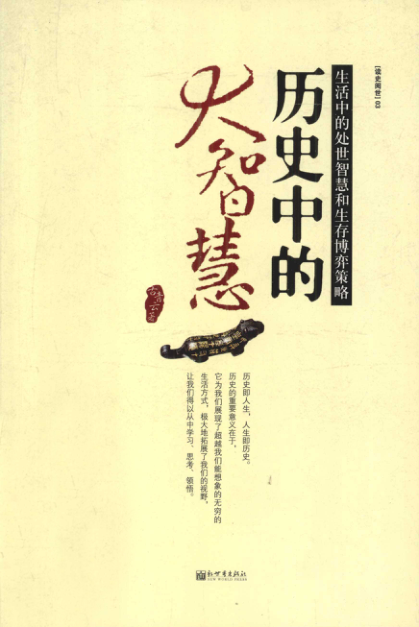 ［读史阅世］03
生活中的处世智慧和生存博弈策略
历史中的
大智慧
古清云著
历史即人生，人生即历史。
历史的重要意义在于，
它为我们展现了超越我们能想象的无穷的
生活方式，极大地拓展了我们的视野，
让我们得以从中学习、思考、领悟。
新世界出版社
NEW WORLD PRESS